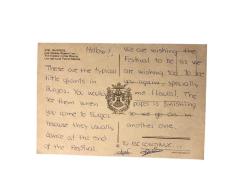 Hellow!
These are the typical
little giants in
Burgos. You would
see them when
you come to Burgos
because they usually
dance at the end
of the Festival
We are wishing the
Festival to be
we
are wishing too. To see
you again, specially
me (
). The
paper is finishing
so we go in
another one.
TO BE CONTINUE...